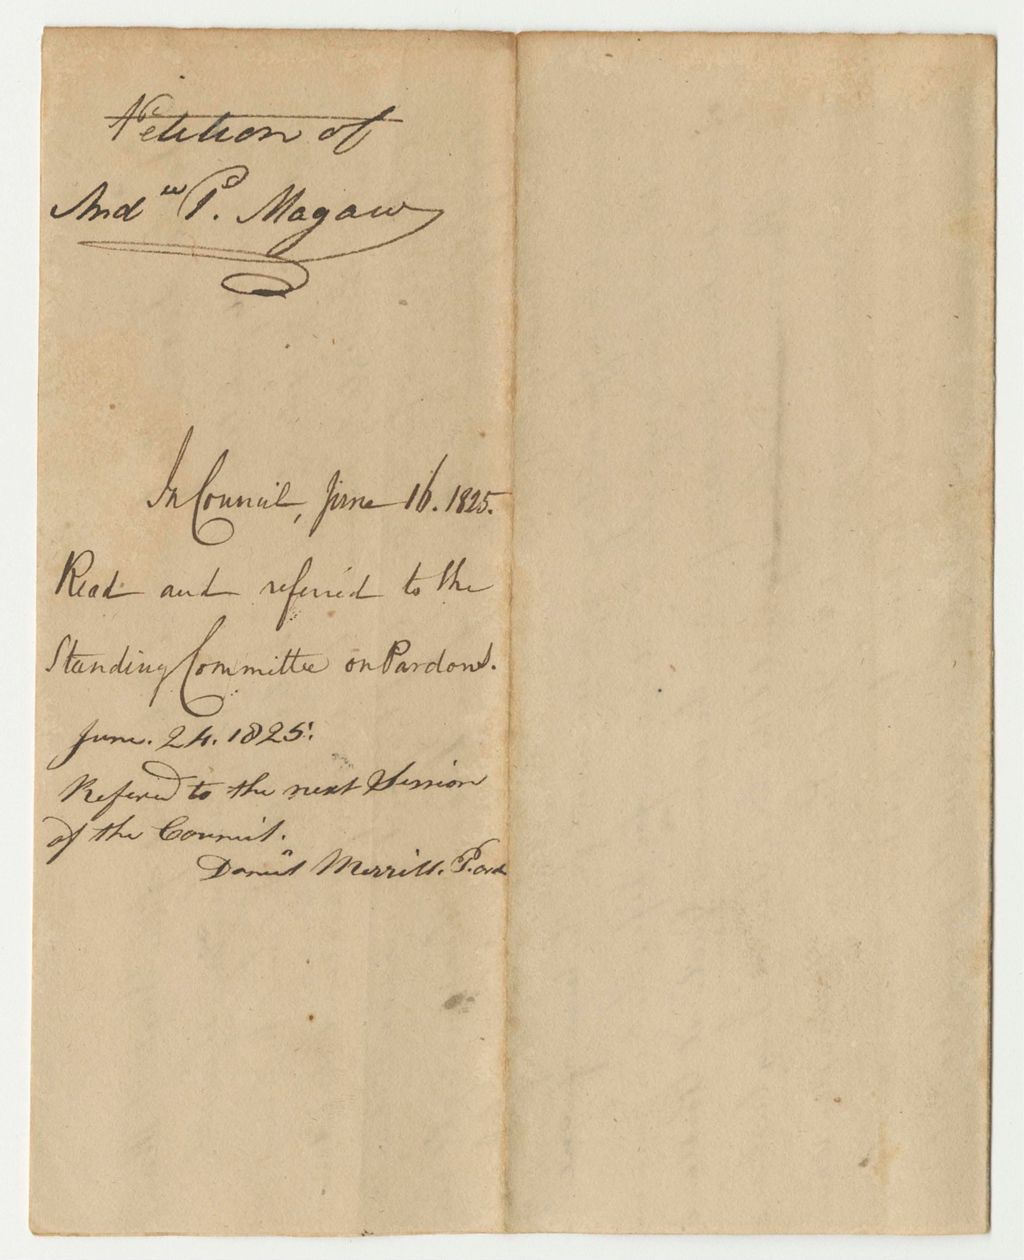 Petition of
Andw P. Magaw
In Council, June 16. 1825.
Read and referred to the
Standing Committee on Pardons.
June. 24. 1825.
Refered to the next Session
of the Council.
Daniel Merrill. P. ord